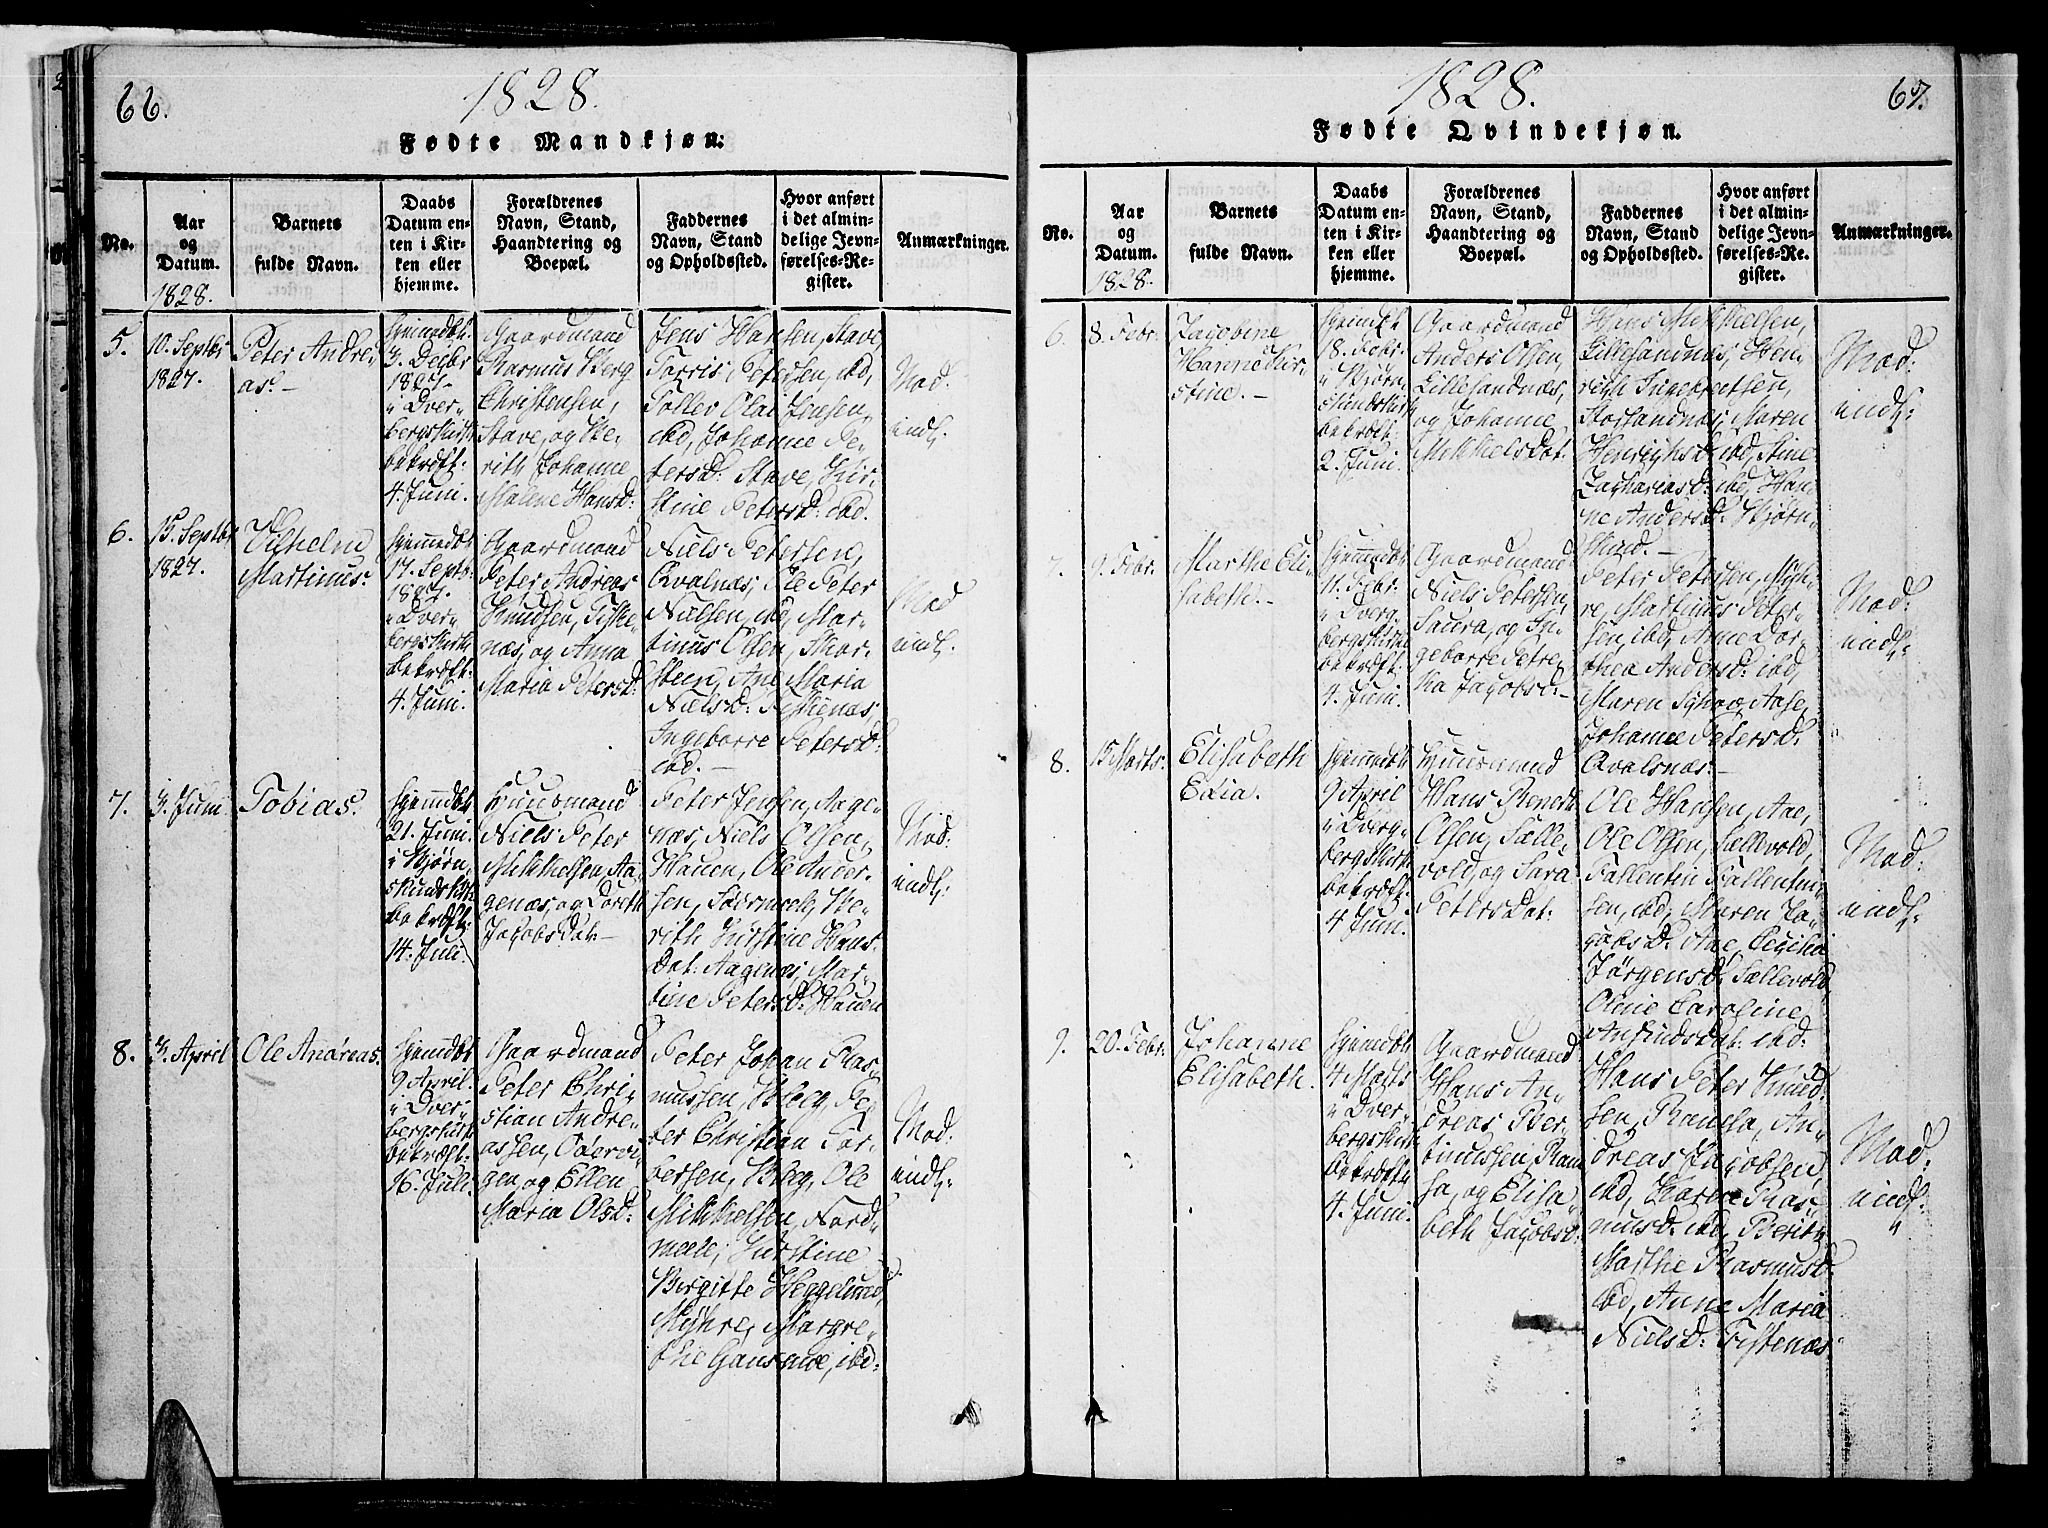 66.
1828.
Fødte Mandkjøn:
No.
Aar
og
Datum.
1828.
Barnets
fulde Navn.
Daabs
Datum en-
ten i Kir-
ken eller
hjemme.
Forældrenes
Navn, Stand,
Haandtering og
Boepæl.
Faddernes
Navn, Stand
og Opholdssted.
Hvor anført
i det almin-
delige Jevn-
førelses-Re-
gister.
Anmærkninger.
5.
10. Septbr
1827.
Peter Andre-
as.
hjemmedbt
3. Decbr
1827.
i Dver-
bergskirke
bekræft:
4. Juni.
Gaardmand
Rasmus Berg
Christensen,
Stave, og Be-
rith Johanne
Malene Hansd:
Jens Hansen, Stave,
Torris Petersen, ibd,
Toller Olai Jensen,
ibd, Johanne Pe-
tersd: Stave, Kir-
stine Petersd: ibd.
Mod.
indl:
6.
15. Septbr
1827.
Vilhelm
Martinus.
hjemmedbt
17. Septb:
1827.
i Dver-
bergskirke
bekræft:
4. Juni.
Gaardmand
Peter Andreas
Knudsen, Fiske-
næs, og Anna
Maria Petersd:
Niels Petersen,
Qvalnæs, Ole Peter
Nielsen, ibd, Mar-
tinus Olsen, Skar-
steen, Ane Maria
Nielsd: Fiskenæs,
Ingeborre Petersd:
ibd.
Mod
indl:
7.
3. Juni
Tobias.
hjemdbt
21. Juni.
i Bjørn-
skindskirke
bekræft:
14. Juli.
Huusmand
Niels Peter
Mikkelsen, Aa-
genæs, og Doreth
Jacobs Dat:
Peter Jensen, Aage-
næs, Niels Olsen,
Hauen, Ole Ander-
sen, Sørmeele, Be-
rith Kirstine Hans-
Dat: Aagenæs, Mar-
tine Petersd: Hauen
Mod:
indl:
8.
3. April
Ole Andreas.
hjemdbt
9 April.
i Dver-
bergskirke
bekræft:
16. Juli.
Gaardmand
Peter Chri-
stian Andre-
assen,
og Ellen
Maria Olsd:
Peter Johan Ras-
mussen, Bleg, Pe-
ter Christian Tor-
bersen, Bleg, Ole
Mikkelsen, Nord-
meele, Kirstine
Birgitte Heggelund,
Myhre, Margre-
the ibd:
Mod:
indl:
1828.
67.
Fødte Qvindekjøn.
No.
Aar
og
Datum.
1828.
Barnets
fulde Navn.
Daabs
Datum en-
ten i Kir-
ken eller
hjemme.
Forældrenes
Navn, Stand,
Haandtering og
Boepæl.
Faddernes
Navn, Stand
og Opholdssted.
Hvor anført
i det almin-
delige Jevn-
førelses-Re-
gister.
Anmærkninger.
6.
8. Febr.
Jacobine
Hanne Kir-
stine.
hjemdbt
18. Febr.
i Bjørn-
skindskirke
bekræft:
2. Juni.
Gaardmand
Anders Olsen,
Lillesandnæs,
og Johanne
Mikkels Dat:
Hans Mikkelsen,
Lillesandnæs, Hen-
rich Ingebretsen,
Storsandnæs, Maren
Henrichsd: ibd, Stine
Zachariasd: ibd, Han-
ne Andersd: Bjørn-
skind.
Mod:
indl:
7.
9. Febr.
Marthe Eli-
sabeth.
hjemmedbt
11. Febr.
i Dverg-
bergskirke
bekræft:
4. Juni.
Gaardmand
Niels Petersen,
Saura, og In-
geborre Petre-
ka Jacobsd:
Peter Petersen, Myh-
re, Martinus Peter-
sen, ibd, Anne Dor-
thea Andersd: ibd,
Maren
Johanne Petersd:
Qvalsnæs.
Mod:
indl:
8.
15. Marts.
Elisabeth
Edia.
hjemmedbt
9 April
i Dverg-
bergskirke
bekræft:
4 Juni.
Huusmand
Hans Benedt
Olsen, Sælle-
vold, og Sara
Peters Dat:
Ole Hansen, Aae,
Ole Olsen, Sællevold,
Fallentin Fallentin-
sen, ibd, Maren Ja-
cobsd: Aae, Cecilia
Jørgensd: Sællevold,
Oline Caroline
Anfinds Dat: ibd:
Mod:
indl:
9.
20. Febr:
Johanne
Elisabeth.
hjemmedbt
4 Marts
i Dver-
bergskirke
bekræft:
4. Juni.
Gaardmand
Hans An-
dreas Ber-
tinussen, Ram-
sa, og Elisa-
beth Jacobsd:
Hans Peter Knud-
sen, Ramsa, An-
dreas Jacobsen,
ibd, Karen Ras-
musd: ibd, Berith
Marthe Rasmusd:
ibd, Anne Maria
Nielsd: Fiskenæs
Mod:
indl: